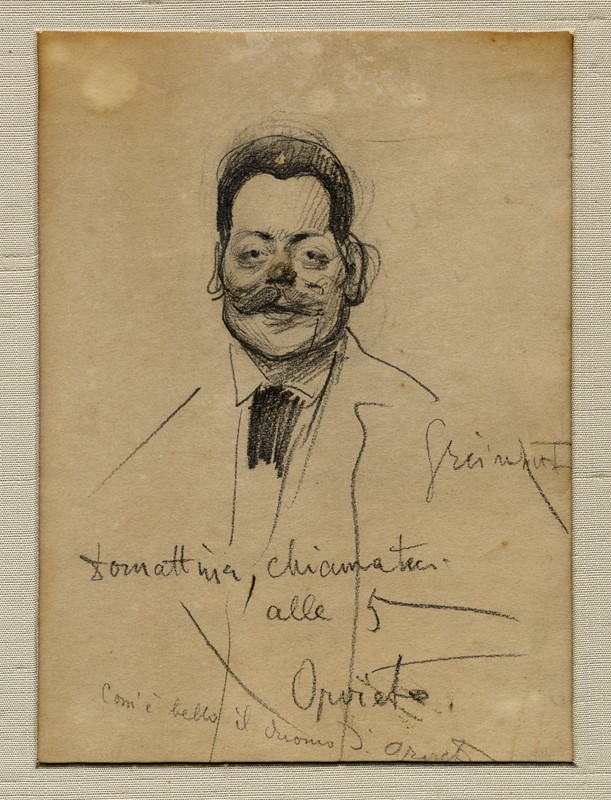 domattina, chiamateci
alle 5
Orvieto.
Com'è bello il duomo di Orvieto